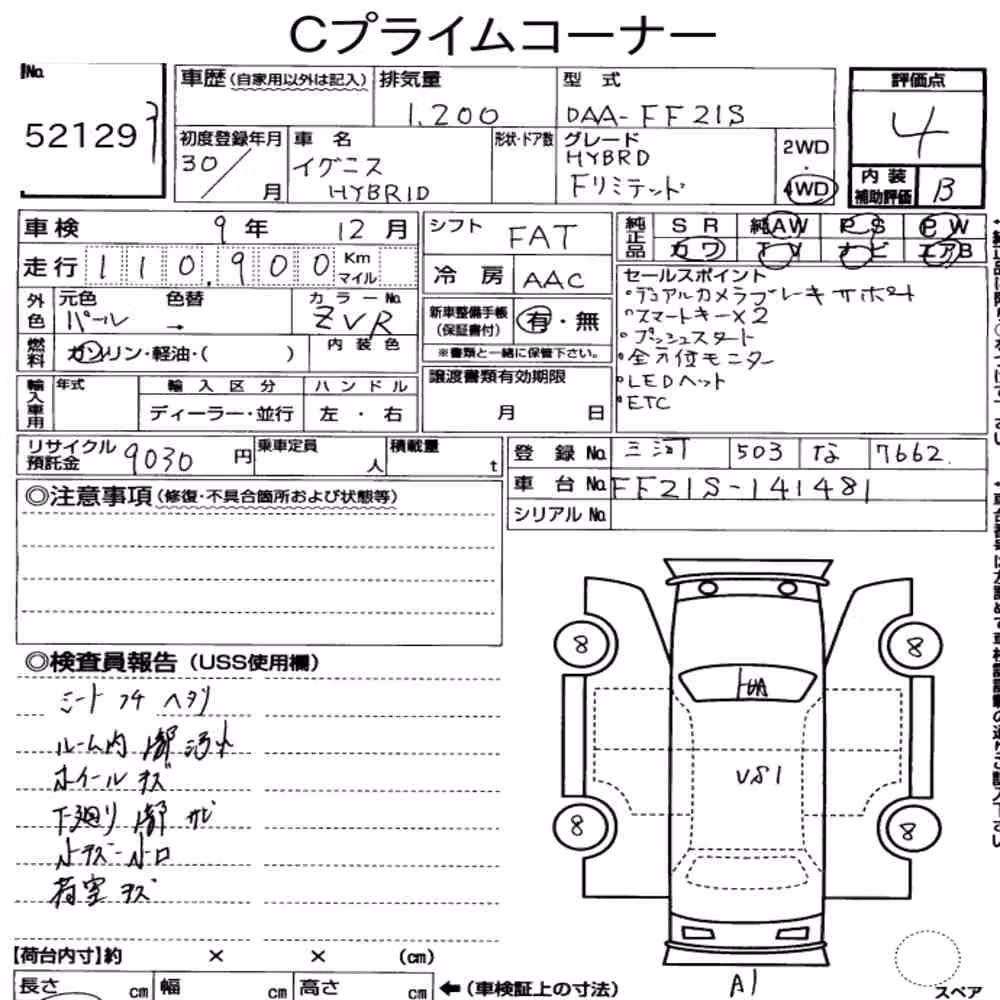 Cプライムコーナー
No.
52129
車歴(自家用以外は記入)
排気量
1,200
型式
DAA-FF21S
評価点
4
内装補助評価
B
初度登録年月
30/ 月
車名
イグニス
HYBRID
形状・ドア数
グレード
HYBRD
Fリミテッド
2WD
・
4WD
車検 9年 12月
走行 110,900 Km マイル
外色
元色 パール →
色替
カラーNo.
ZVR
燃料
ガソリン・軽油・( )
内装色
シフト FAT
冷房 AAC
新車整備手帳(保証書付) 有・無
※書類と一緒に保管下さい。
純正品
SR 純AW PS PW
カワ TV ナビ エアB
セールスポイント
・デュアルカメラブレーキサポート
・スマートキー×2
・プッシュスタート
・全方位モニター
・LEDヘッド
・ETC
輸入車用
年式
輸入区分
ディーラー・並行
ハンドル
左・右
譲渡書類有効期限
月 日
リサイクル預託金 9030円
乗車定員 人
積載量 t
登録No. 三河 503 な 7662
車台No. FF21S-141481
シリアルNo.
◎注意事項(修復・不具合箇所および状態等)
◎検査員報告(USS使用欄)
シート コケ ヘタリ
ルーム内 汚れ
ホイール キズ
下廻り サビ
荷室 キズ
8
8
8
8
US1
A1
スペア
【荷台内寸】約 × × (cm)
長さ cm 幅 cm 高さ cm ←(車検証上の寸法)